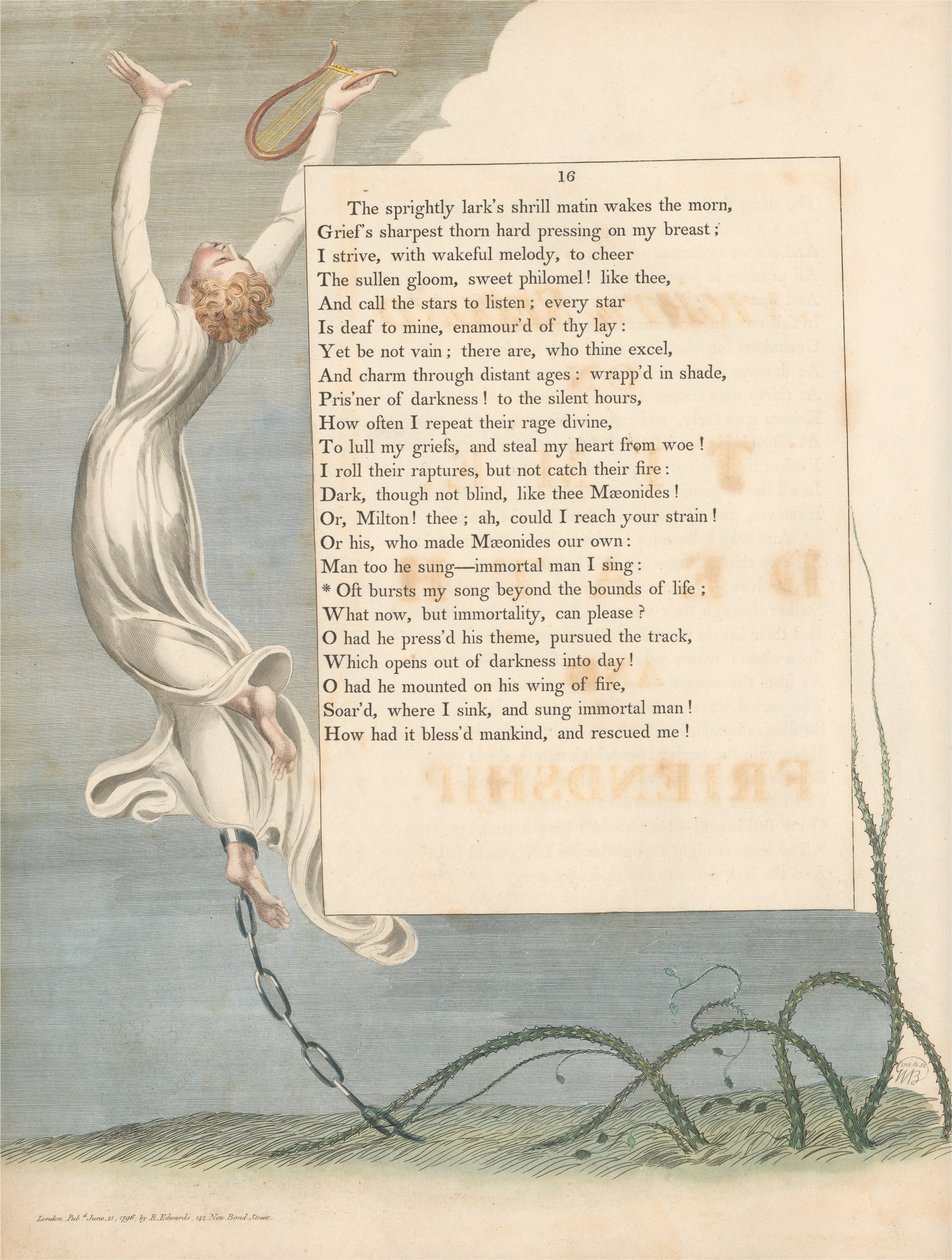 16
The sprightly lark's shrill matin wakes the morn,
Grief's sharpest thorn hard pressing on my breast;
I strive, with wakeful melody, to cheer
The sullen gloom, sweet philomel! like thee,
And call the stars to listen; every star
Is deaf to mine, enamour'd of thy lay:
Yet be not vain; there are, who thine excel,
And charm through distant ages: wrapp'd in shade,
Pris'ner of darkness! to the silent hours,
How often I repeat their rage divine,
To lull my griefs, and steal my heart from woe!
I roll their raptures, but not catch their fire:
Dark, though not blind, like thee Mæonides!
Or, Milton! thee; ah, could I reach your strain!
Or his, who made Mæonides our own:
Man too he sung—immortal man I sing:
* Oft bursts my song beyond the bounds of life;
What now, but immortality, can please?
O had he press'd his theme, pursued the track,
Which opens out of darkness into day!
O had he mounted on his wing of fire,
Soar'd, where I sink, and sung immortal man!
How had it bless'd mankind, and rescued me!
FRIENDSHIP
WB
London Pub.d June, 21, 1796, by R. Edwards, 142 New Bond Street.